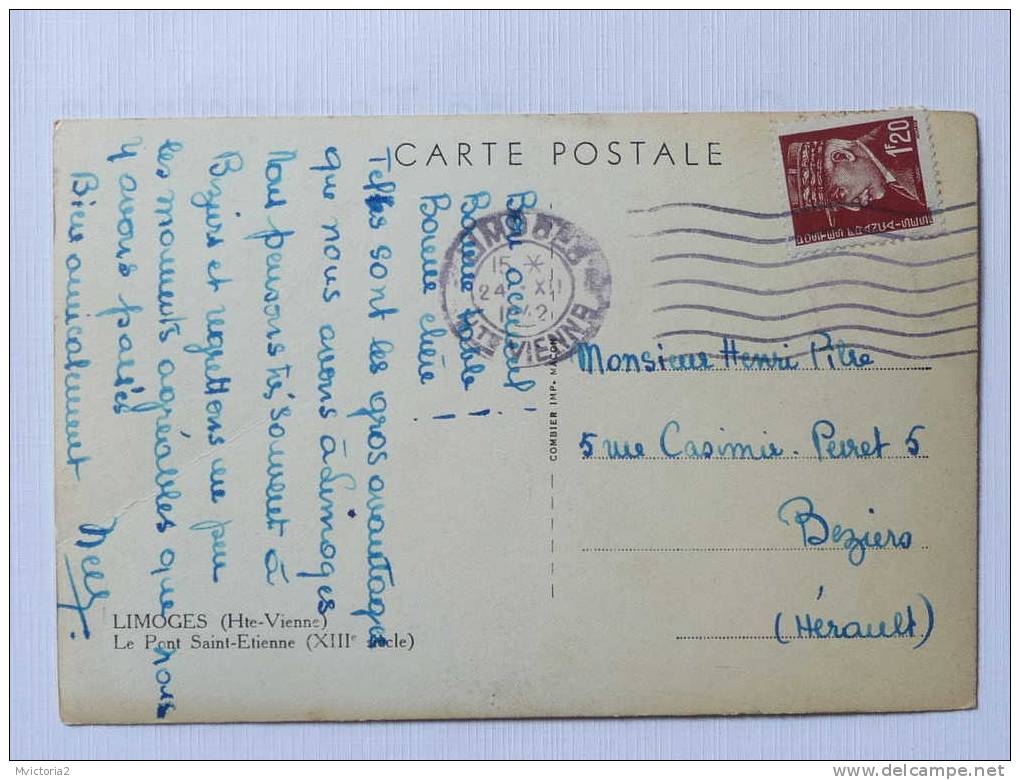 CARTE POSTALE
1F20
LIMOGES R.P.
15 *
24 XII
1942
HTE VIENNE
Bon accueil !
Bonne table !
Bonne chère !
Telles sont les gros avantages
que nous avons à Limoges
Nous pensons très souvent à
Beziers et regrettons un peu
les moments agréables que nous
y avons passés
Bien amicalement
Nelly.
COMBIER IMP. MACON
Monsieur Henri Pitre
5 rue Casimir-Peret 5
Beziers
(Hérault)
LIMOGES (Hte-Vienne)
Le Pont Saint-Etienne (XIIIe siècle)
Mvictoria2
delcampe.net